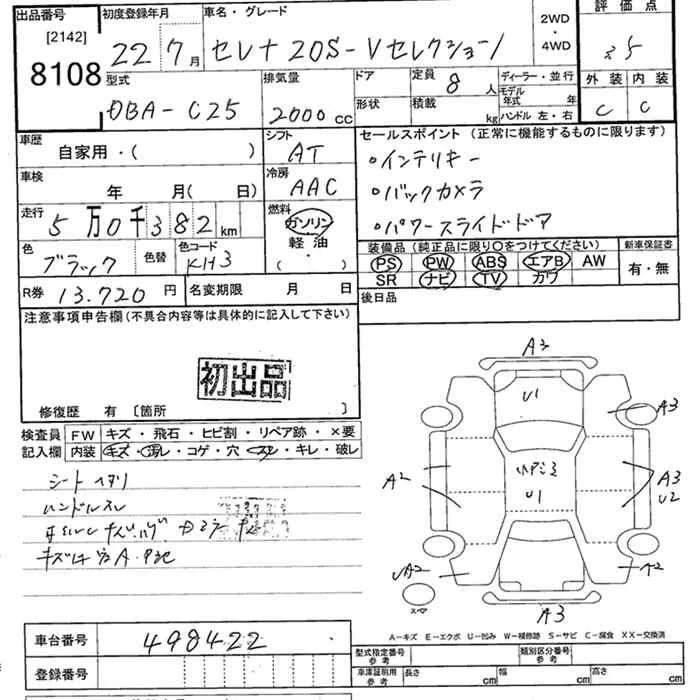 出品番号
[2142]
8108
初度登録年月
22 7月
車名・グレード
セレナ 20S-Vセレクション
2WD
・
4WD
評価点
3.5
外装 内装
C C
型式
DBA-C25
排気量
2000cc
ドア
形状
定員
8人
積載
kg
ディーラー・並行
モデル年式 年
ハンドル 左・右
車歴
自家用・( )
シフト
AT
セールスポイント(正常に機能するものに限ります)
・インテリキー
・バックカメラ
・パワースライドドア
車検
年 月( 日)
冷房
AAC
走行
5万0千382km
燃料
ガソリン
軽油
( )
色
ブラック
色替
色コード
KH3
装備品(純正品に限り○をつけてください)
PS PW ABS エアB AW
SR ナビ TV カワ
新車保証書
有・無
R券 13.720円
名変期限 月 日
後日品
注意事項申告欄(不具合内容等は具体的に記入して下さい)
初出品
修復歴 有 〔箇所 〕
検査員記入欄
FW キズ・飛石・ヒビ割・リペア跡・×要
内装 キズ・汚レ・コゲ・穴・スレ・キレ・破レ
シートヘタリ
ハンドルスレ
A3
U1
A3
A2
U1
A3
U2
UA2
A2
スペア
A3
A-キズ E-エクボ U-凹み W-補修跡 S-サビ C-腐食 XX-交換済
車台番号
498422
登録番号
型式指定番号
参考
類別区分番号
参考
車庫証明用
参考
長さ cm
幅 cm
高さ cm